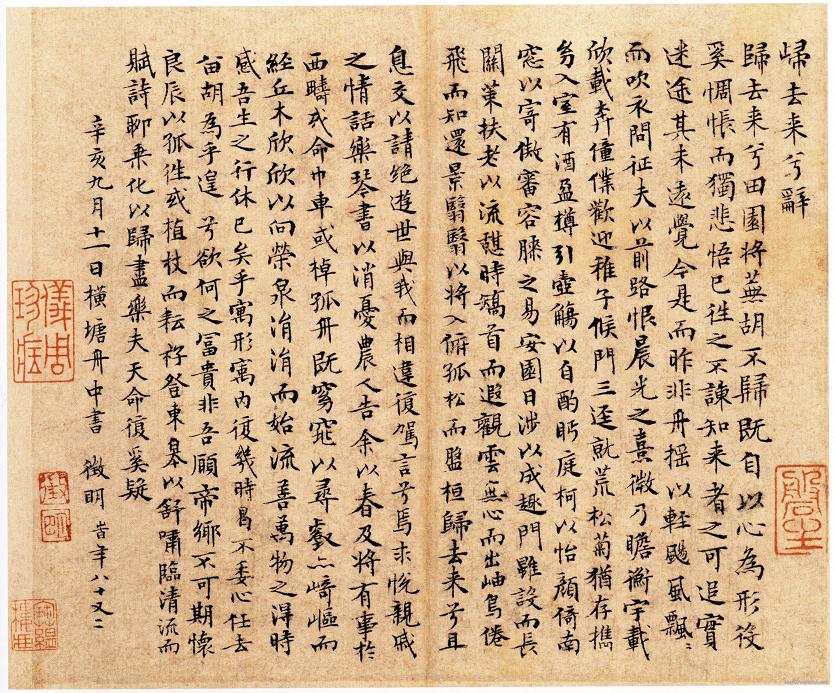 歸去来兮辭
歸去来兮田園將蕪胡不歸既自以心為形役
奚惆悵而獨悲悟已往之不諫知来者之可追實
迷途其未遠覺今是而昨非舟摇以輕颺風飄〻
而吹衣問征夫以前路恨晨光之熹微乃瞻衡宇載
欣載奔僮僕歡迎稚子候門三逕就荒松菊猶存攜
幼入室有酒盈樽引壺觴以自酌眄庭柯以怡顏倚南
窓以寄傲審容膝之易安園日涉以成趣門雖設而長
關策扶老以流憩時矯首而遐觀雲無心而出岫鳥倦
飛而知還景翳翳以將入俯孤松而盤桓歸去来兮且
息交以請絶遊世與我而相違復駕言兮焉求悅親戚
之情話樂琴書以消憂農人告余以春及將有事於
西疇或命巾車或棹孤舟既窈窕以尋壑亦崎嶇而
經丘木欣欣以向榮泉涓涓而始流善萬物之得時
感吾生之行休已矣乎寓形寓内復幾時曷不委心任去
留胡為乎遑兮欲何之富貴非吾願帝鄉不可期懷
良辰以孤往或植杖而耘耔登東皋以舒嘯臨清流而
賦詩聊乘化以歸盡樂夫天命復奚疑
辛亥九月十一日橫塘舟中書 徵明 時年八十又二
儀周珍藏
徵明